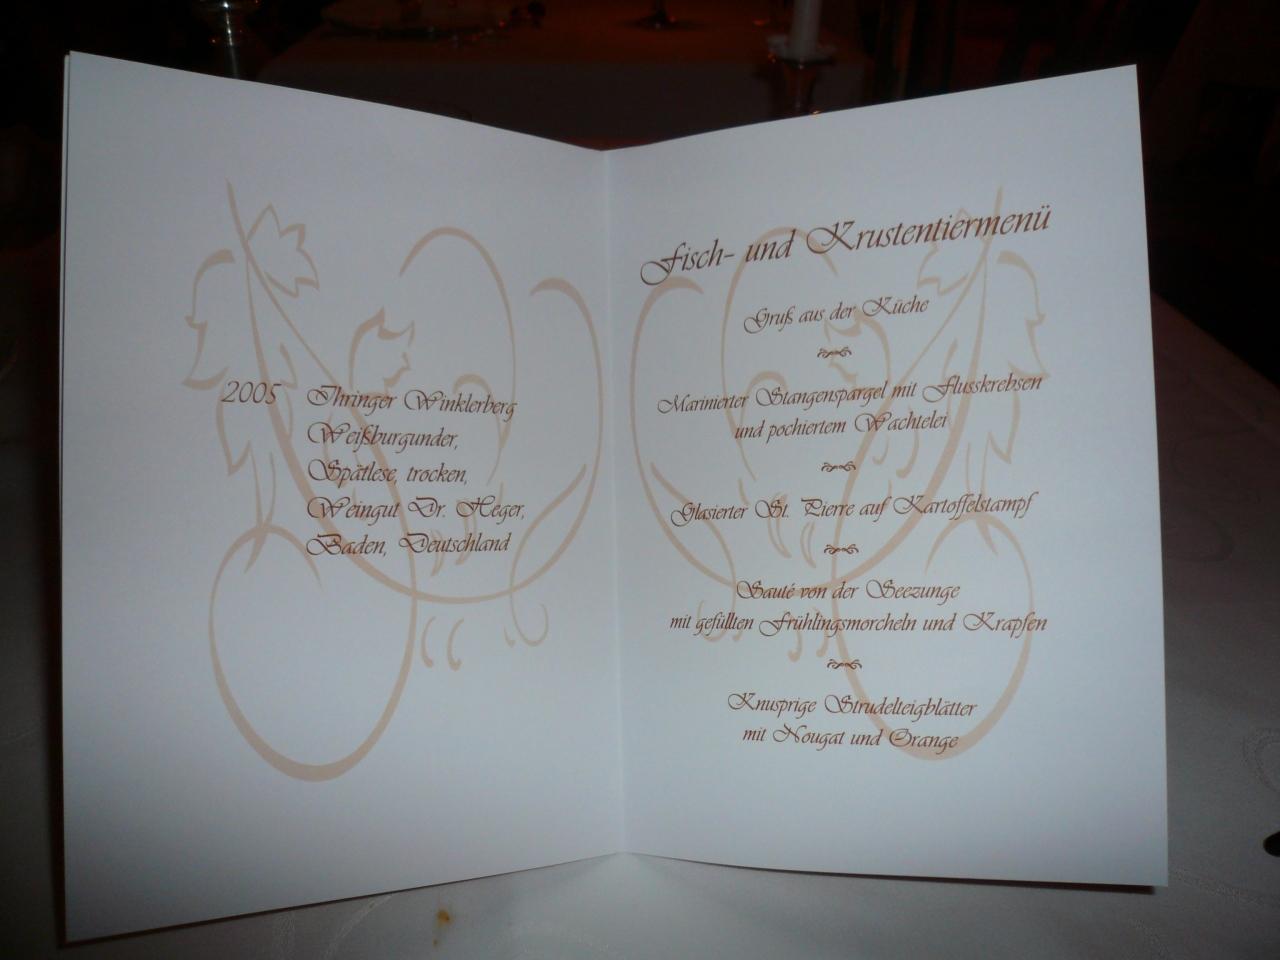 2005 Ihringer Winklerberg
Weißburgunder,
Spätlese, trocken,
Weingut Dr. Heger,
Baden, Deutschland
Fisch- und Krustentiermenü
Gruß aus der Küche
Marinierter Stangenspargel mit Flusskrebsen
und pochiertem Wachtelei
Glasierter St. Pierre auf Kartoffelstampf
Sauté von der Seezunge
mit gefüllten Frühlingsmorcheln und Krapfen
Knusprige Strudelteigblätter
mit Nougat und Orange